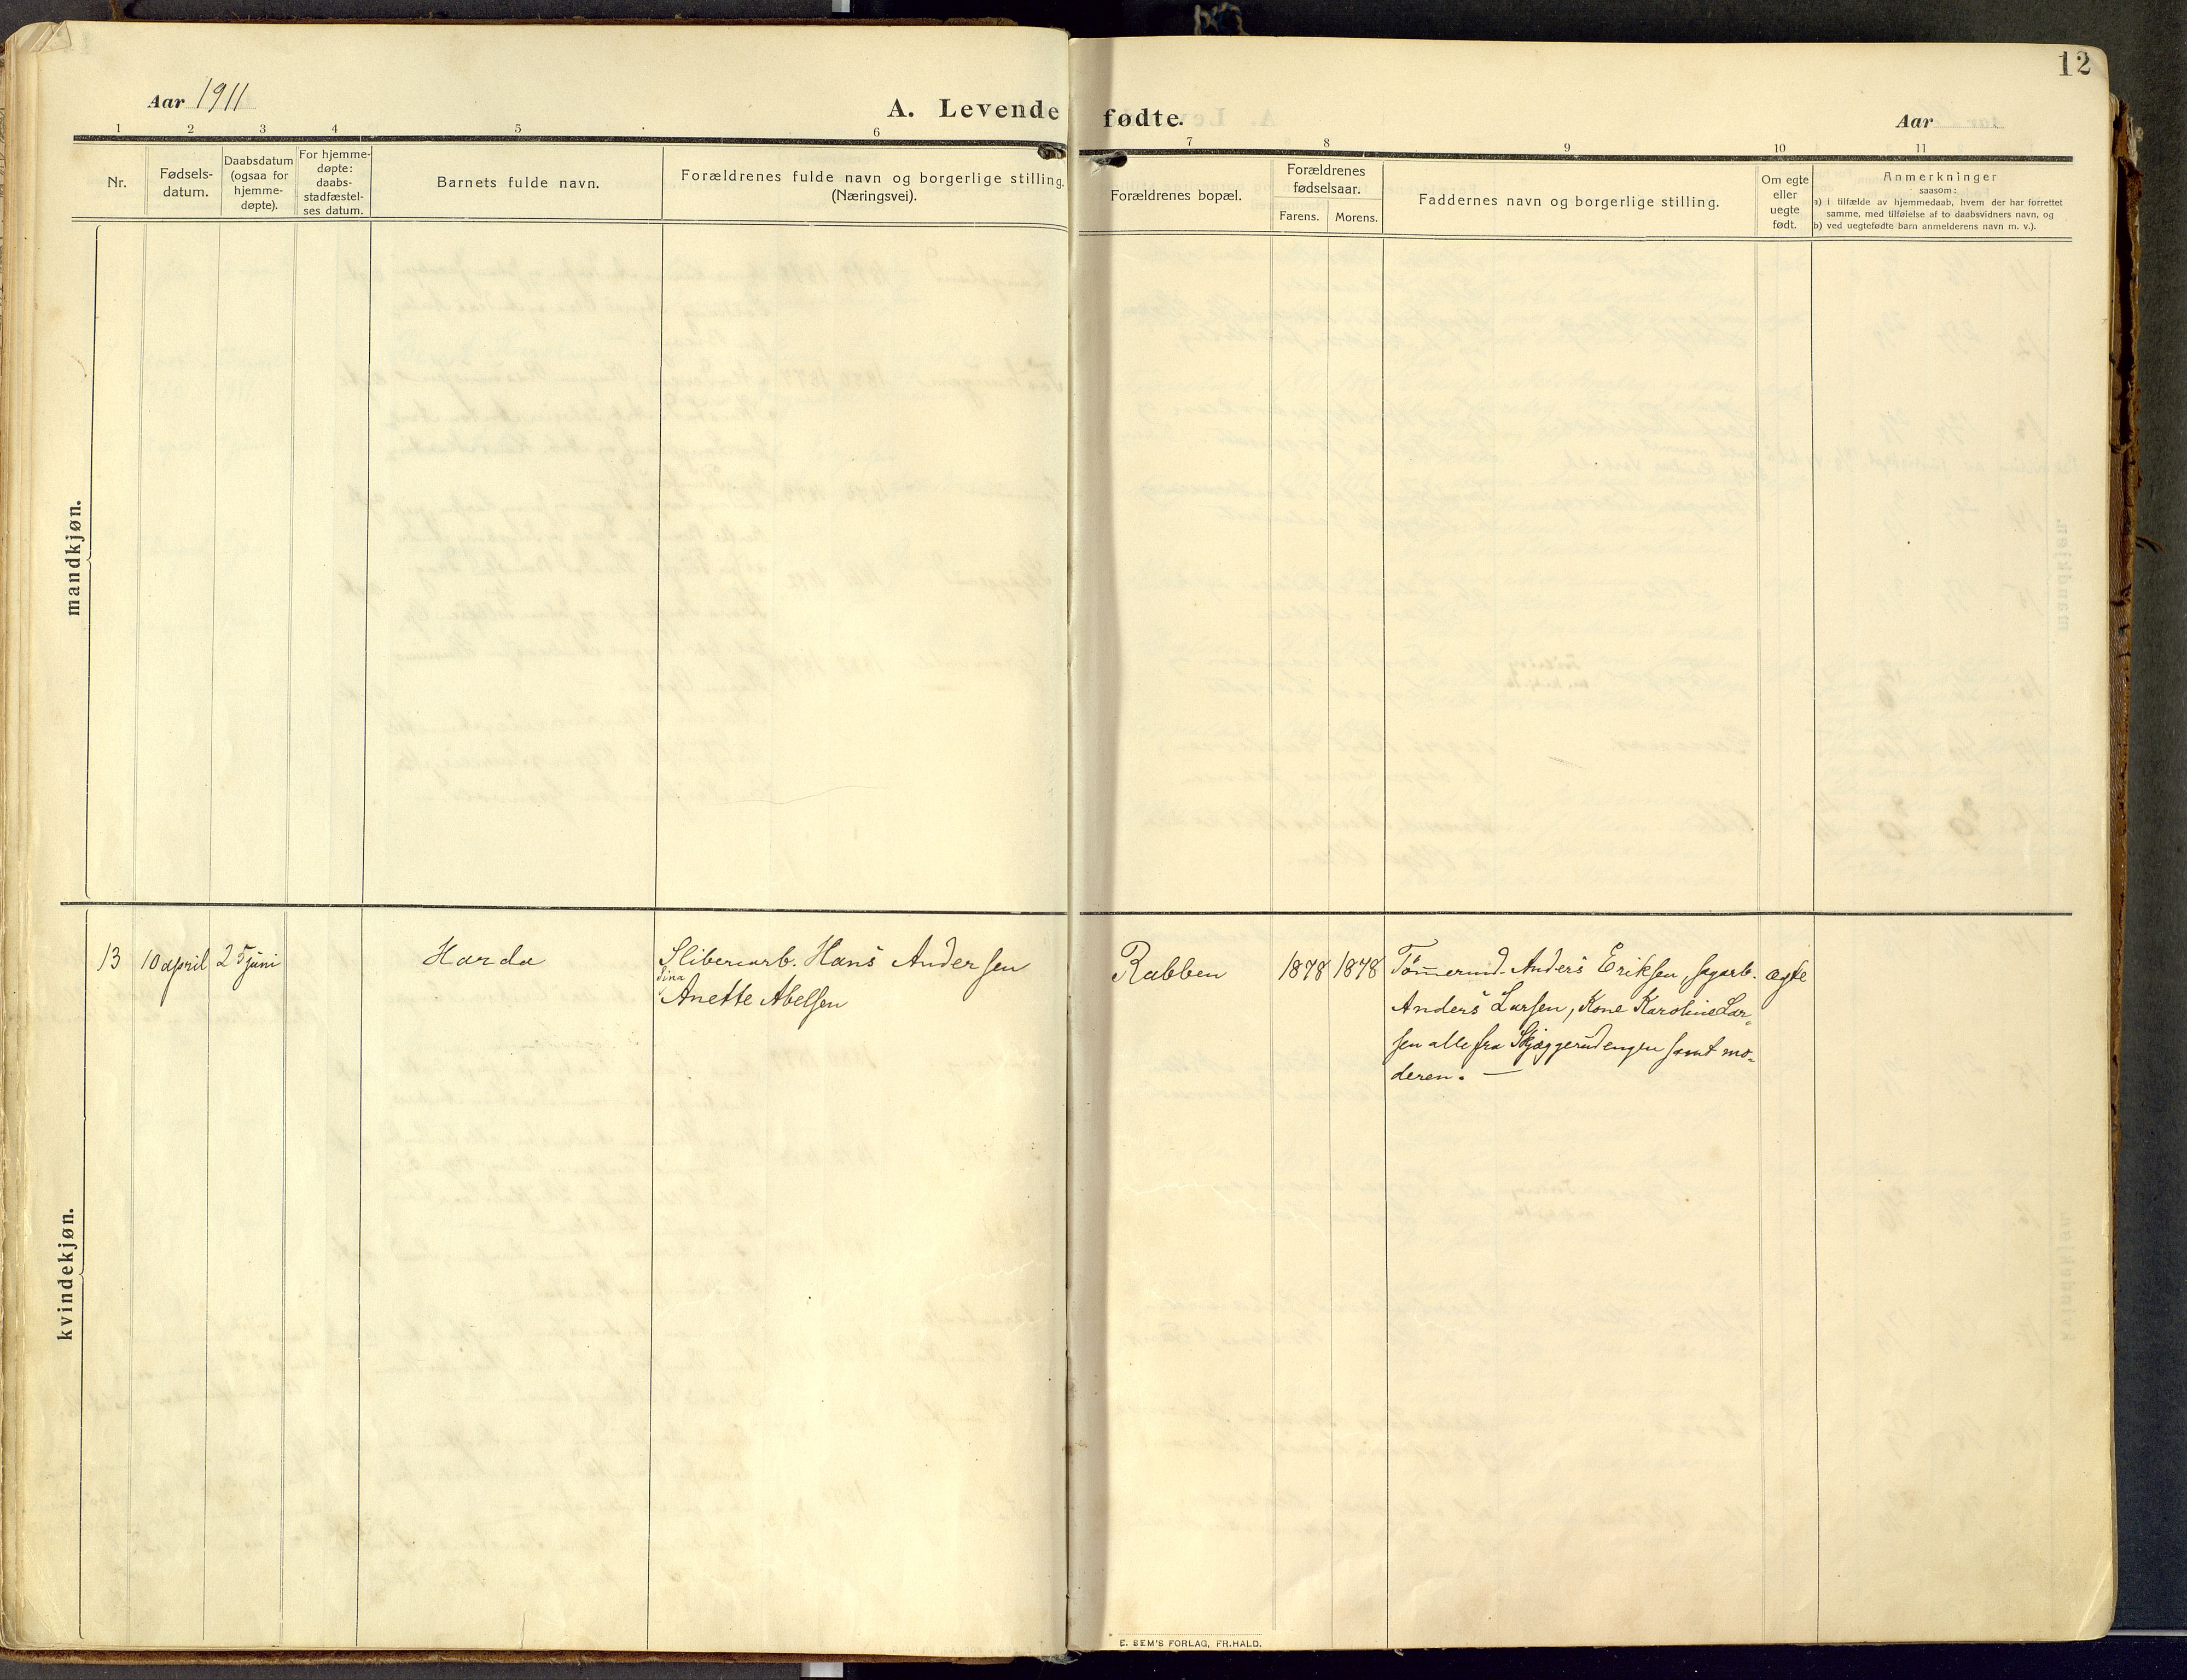 12
Aar 1911
A. Levende fødte.
Aar
1 2 3 4 5 6 7 8 9 10 11
Nr.
Fødsels-
datum.
Daabsdatum
(ogsaa for
hjemme-
døpte).
For hjemme-
døpte:
daabs-
stadfæstel-
ses datum.
Barnets fulde navn.
Forældrenes fulde navn og borgerlige stilling.
(Næringsvei).
Forældrenes bopæl.
Forældrenes
fødselsaar.
Farens. Morens.
Faddernes navn og borgerlige stilling.
Om egte
eller
uegte
født.
Anmerkninger
saasom:
a) i tilfælde av hjemmedaab, hvem der har forrettet
samme, med tilføielse af to daabsvidners navn, og
b) ved uegtefødte barn anmelderens navn m. v.).
mandkjøn.
kvindekjøn.
13 10 april 25 juni Harda Sliberiarb. Hans Andersen Rabben 1878 1878 Tømmermd. Anders Eriksen, sagarb. ægte
Sina
Anette Abelsen
Anders Larsen, Kone Karoline Lar-
sen alle fra Skjæggerudengen samt mo-
deren. —
E. SEM'S FORLAG, FR.HALD.